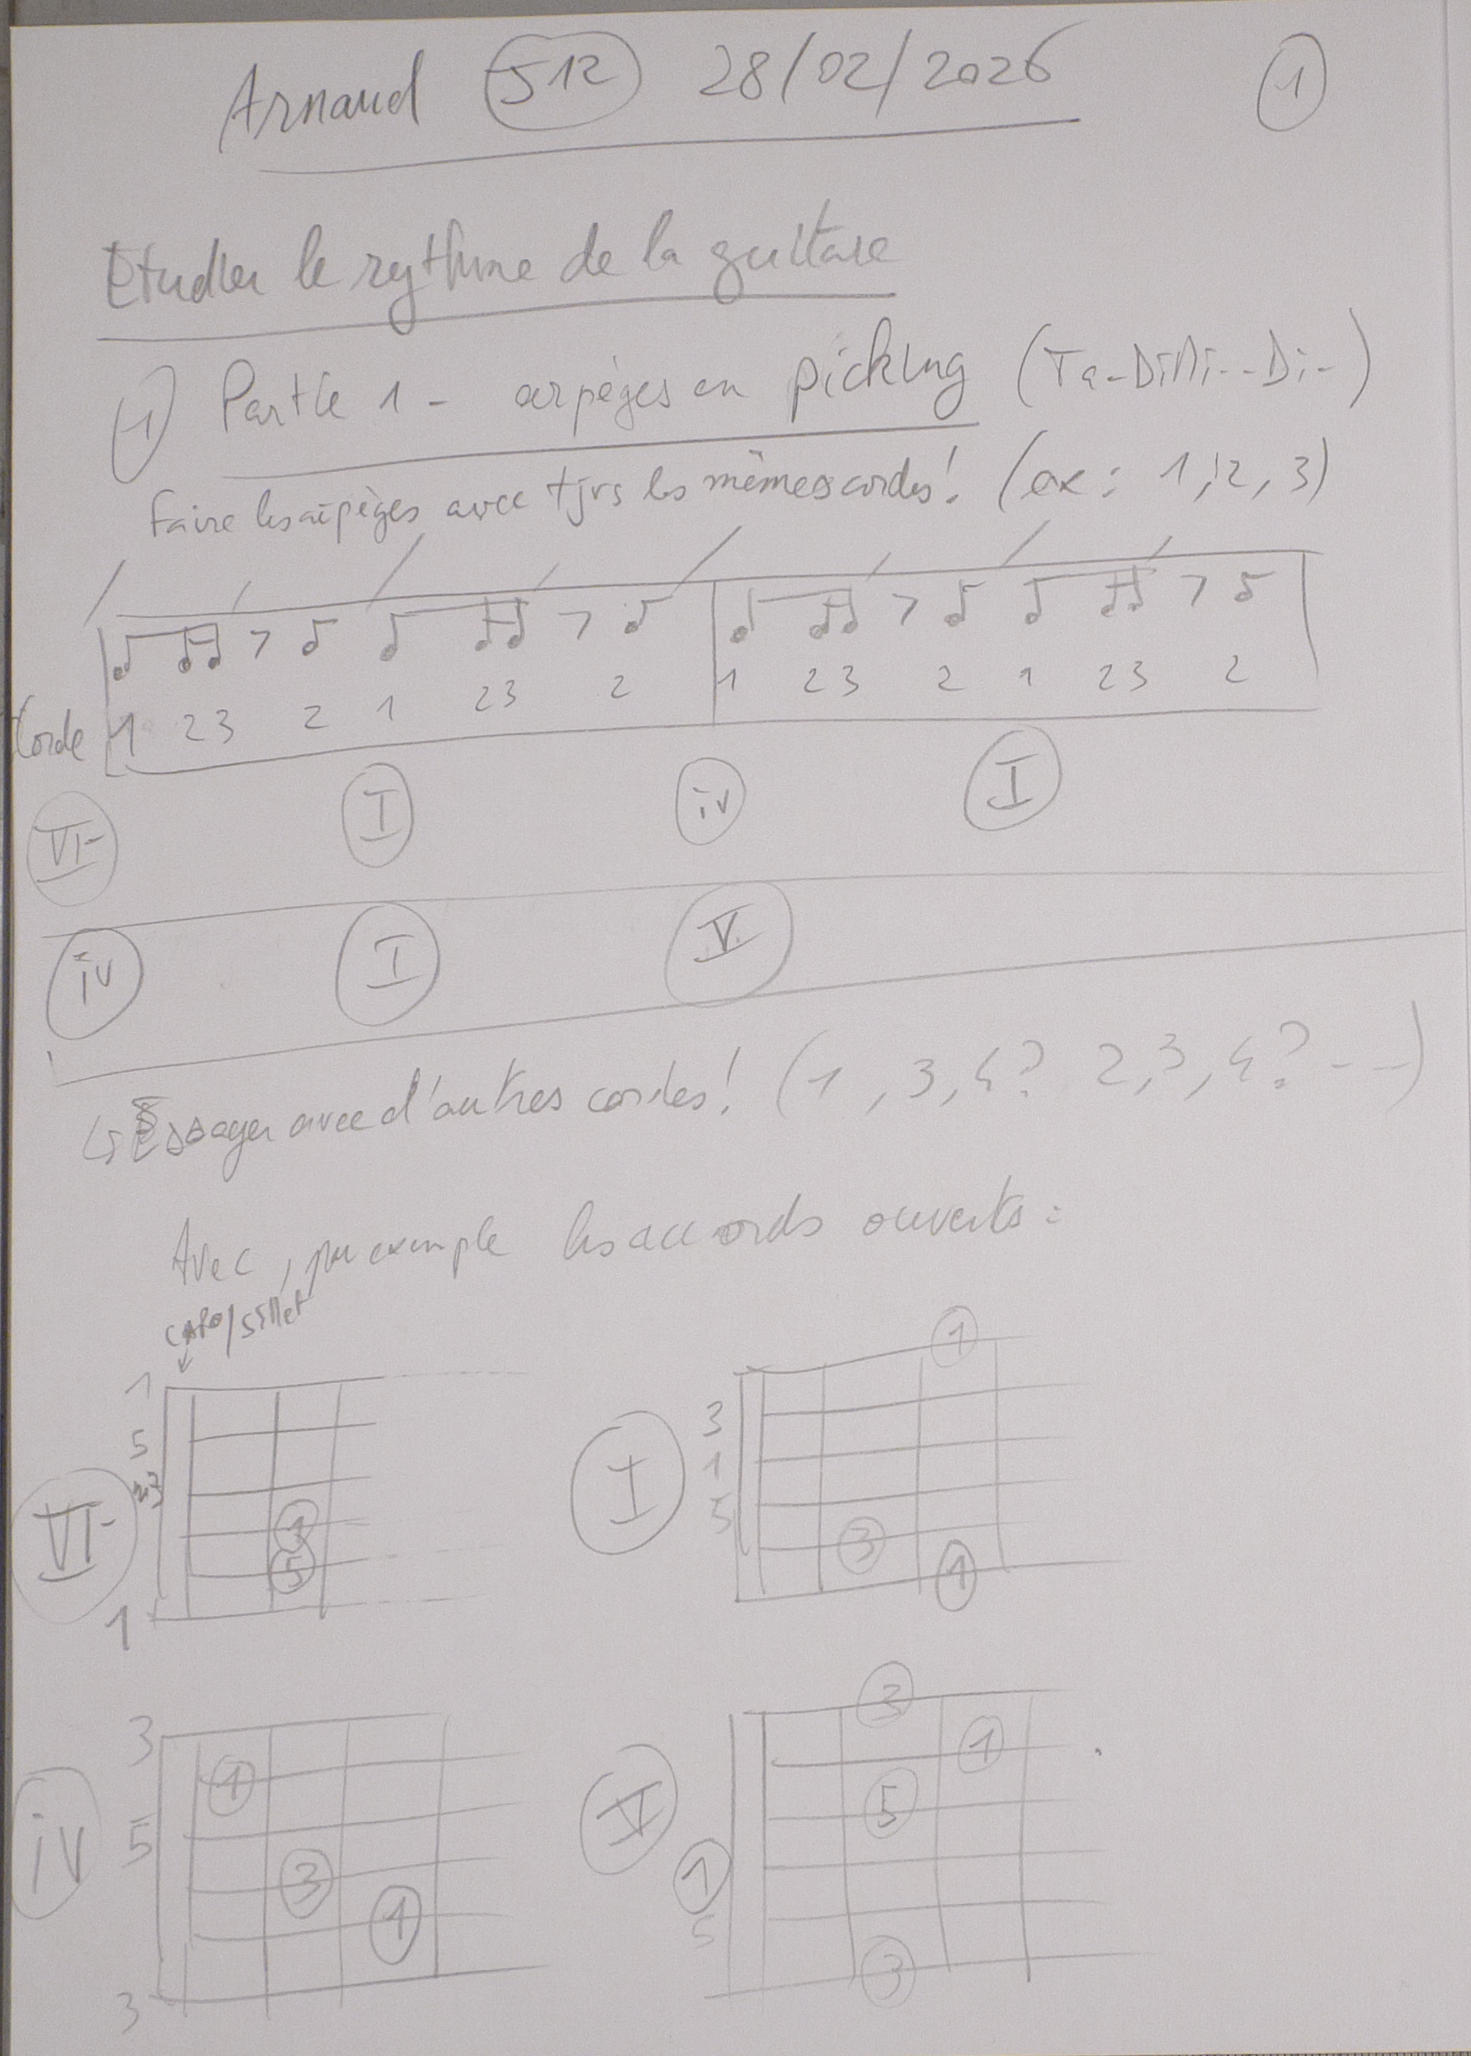 Arnaud 512 28/02/2026 1
Etudier le rythme de la guitare
1) Partie 1 - arpèges en picking (Ta-DiDi--Di-)
Faire les arpèges avec tjrs les mêmes cordes! (ex: 1, 2, 3)
Corde 1 23 2 1 23 2 1 23 2 1 23 2
VI- I iv I
iv I V
↳ Essayer avec d'autres cordes! (1, 3, 4? 2, 3, 4? --)
Avec, par exemple les accords ouverts:
CAPO/sillet
VI-
1
5
m3
1
5
1
I
1
3
1
5
3
1
iv
3
1
5
3
1
3
V
3
1
5
1
5
3